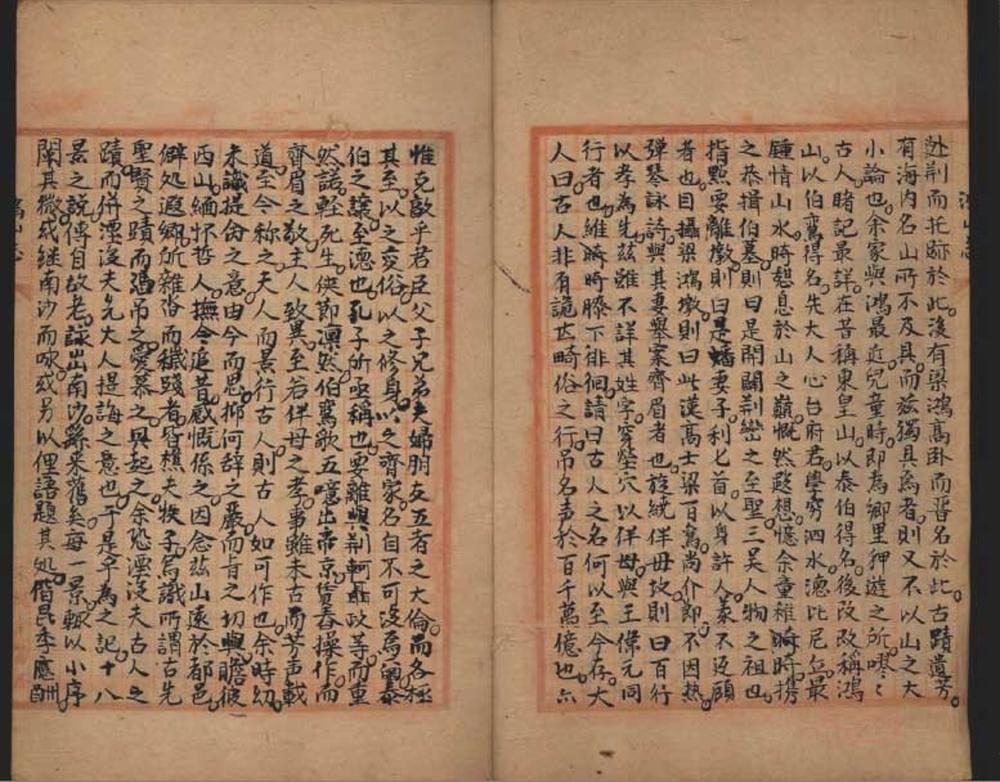 赴荆而托跡於此後有梁鴻高卧而晋名於此古蹟遺芳
有海内名山所不及具而兹獨具焉者則又不以山之大
小論也余家與鴻最近兒童時即為鄉里狎遊之所喋〻
古人睹記最詳在昔稱東皇山以泰伯得名後改稱鴻
山以伯鸞得名先大人心台府君學窮泗水德比尼丘最
鍾情山水時憩息於山之巔慨然遐想憶余童稚時時携
之恭揖伯墓則曰是開闢荆蠻之至聖三吳人物之祖也
指點要離墩則曰是燔妻子利匕首以身許人義不返顧
者也目攝梁鴻墩則曰此漢高士梁百鸞尚介節不因熱
彈琴詠詩與其妻舉案齊眉者也旋繞佯母故則曰百行
以孝為先兹雖不詳其姓字穿塋穴以佯母與王偉元同
行者也維時時膝下徘徊請曰古人之名何以至今存大
人曰古人非有詭世畸俗之行吊名声於百千萬億也六
惟克敦乎君臣父子兄弟夫婦朋友五者之大倫而各極
其至以之変俗以之修身以之齊家名自不可没焉爾泰
伯之讓至德也孔子所亟稱也要離與荆軻聶政等而重
然諾輕死生俠節凛然伯鸞歌五噫出帝京賃舂操作而
齊眉之敬主人致異至若佯母之孝事雖未古而芳声載
道至今称之夫人而景行古人則古人如可作也余時幼
未識提命之意由今而思抑何辞之嚴而旨之切與瞻彼
西山緬怀哲人撫今追昔感慨係之因念兹山遠於都邑
僻処遐鄉所雜沓而穢踐者皆樵夫牧子烏識所謂古先
聖賢之蹟而憑吊之愛慕之興起之余恐湮没夫古人之
蹟而併湮没夫先大人提誨之意也于是乎為之記十八
景之説傳自故老詠出南沙繇来舊矣每一景輒以小序
闡其微或継南沙而咏或另以俚語題其処偕昆季應酬